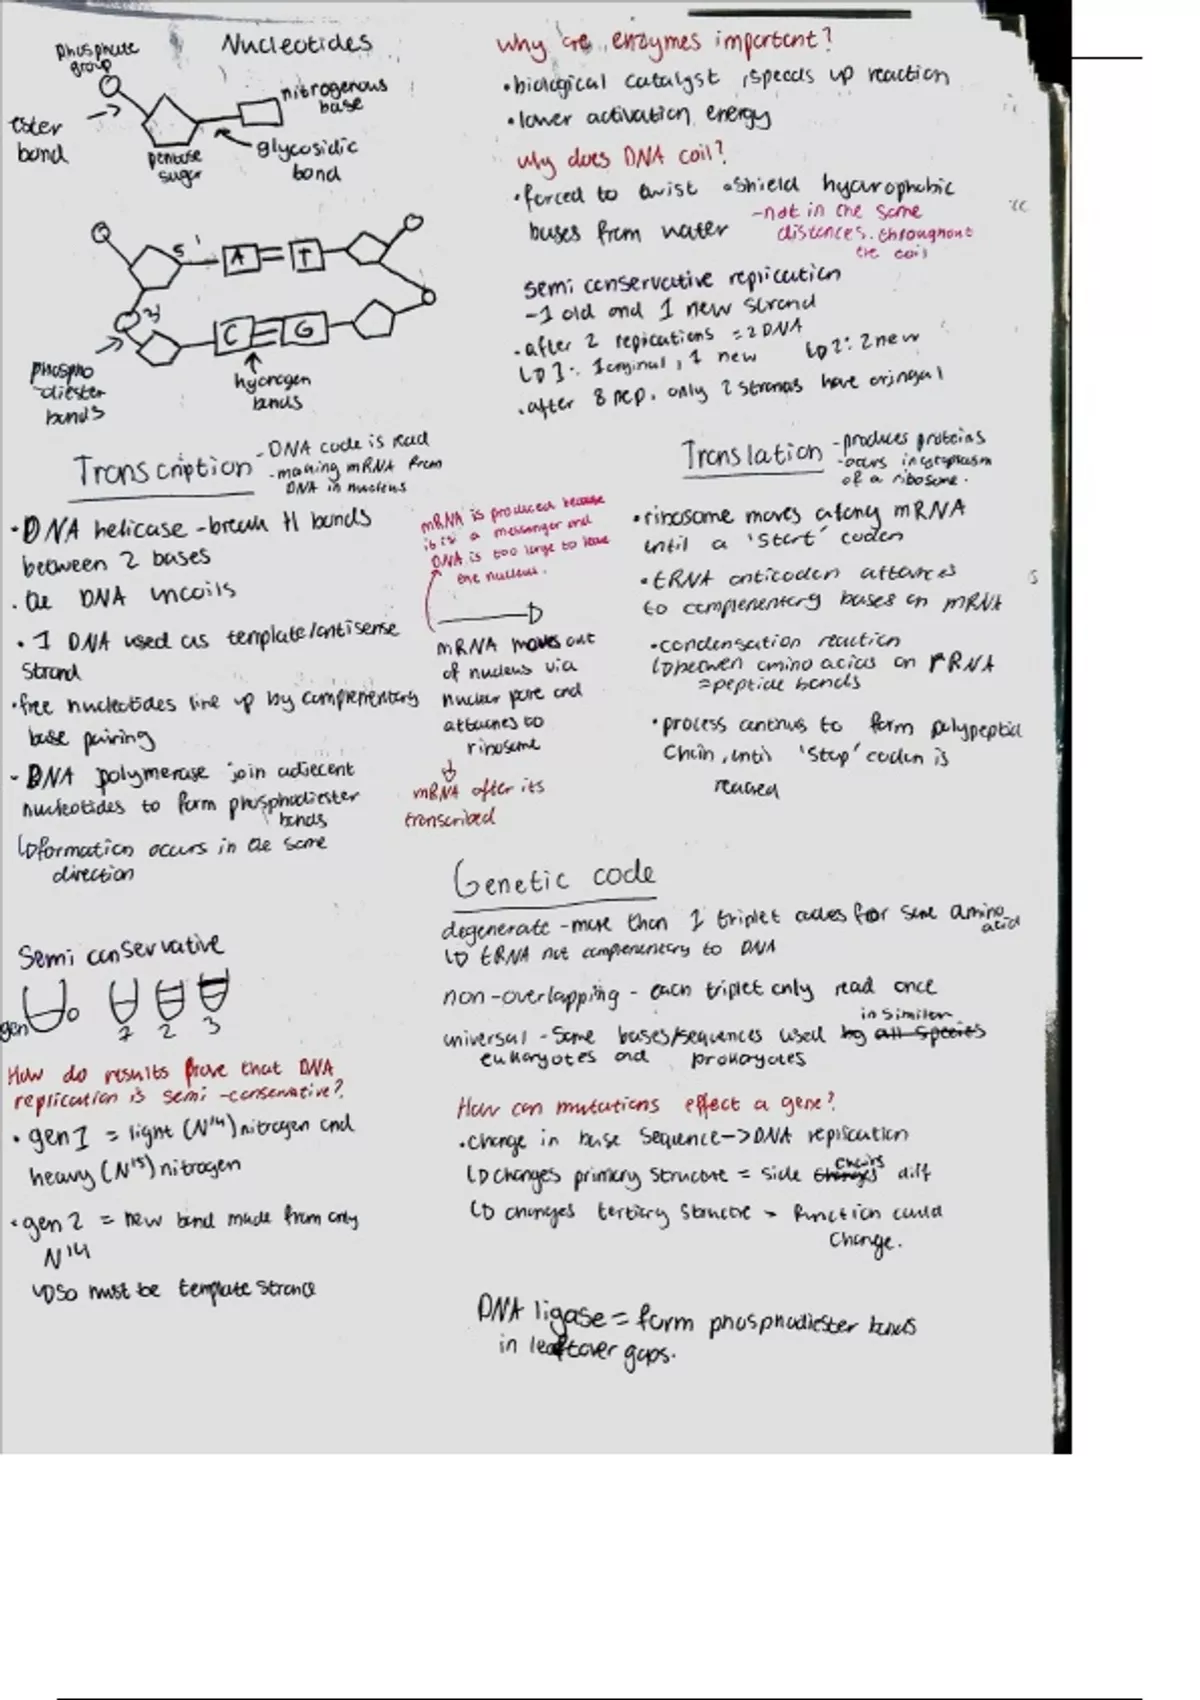 Nucleotides
phosphate
group
nitrogenous
base
ester
bond
pentose
sugar
glycosidic
bond
5'
A
T
3'
C
G
phospho
-diester
bonds
hydrogen
bonds
why are enzymes important?
•biological catalyst, speeds up reaction
•lower activation energy
why does DNA coil?
•forced to twist •shield hydrophobic
bases from water
-not in the same
distances throughout
the coil
semi conservative replication
-1 old and 1 new strand
•after 2 replications = 2 DNA
↳1: 1 original, 1 new ↳2: 2 new
•after 8 rep. only 2 strands have original
Transcription
-DNA code is read
-making mRNA from
DNA in nucleus
•DNA helicase -break H bonds
between 2 bases
•the DNA uncoils
•1 DNA used as template/antisense
strand
•free nucleotides line up by complementary
base pairing
-DNA polymerase join adjecent
nucleotides to form phosphodiester
bonds
↳formation occurs in the same
direction
mRNA is produced because
it is a messenger and
DNA is too large to leave
the nucleus.
mRNA moves out
of nucleus via
nuclear pore and
attaches to
ribosome
mRNA after its
transcribed
Translation
-produces proteins
-occurs in cytoplasm
of a ribosome.
•ribosome moves along mRNA
until a 'start' codon
•tRNA anticodon attaches
to complementary bases on mRNA
•condensation reaction
↳between amino acids on rRNA
=peptide bonds
•process continues to form polypeptid
chain, until 'stop' codon is
reached
Genetic code
degenerate -more than 1 triplet codes for same amino
acid
↳ tRNA not complementary to DNA
non-overlapping - each triplet only read once
in similar
universal - Same bases/sequences used by all species
eukaryotes and prokaryotes
Semi conservative
gen
0
1
2
3
How do results prove that DNA
replication is semi-conservative?
•gen 1 = light (N14) nitrogen and
heavy (N15) nitrogen
•gen 2 = new band made from only
N14
↳so must be template strand
How can mutations effect a gene?
•change in base sequence -> DNA replication
chains
↳changes primary structure = side changes diff
↳ changes tertiary structure > function could
change.
DNA ligase = form phosphodiester bonds
in leftover gaps.